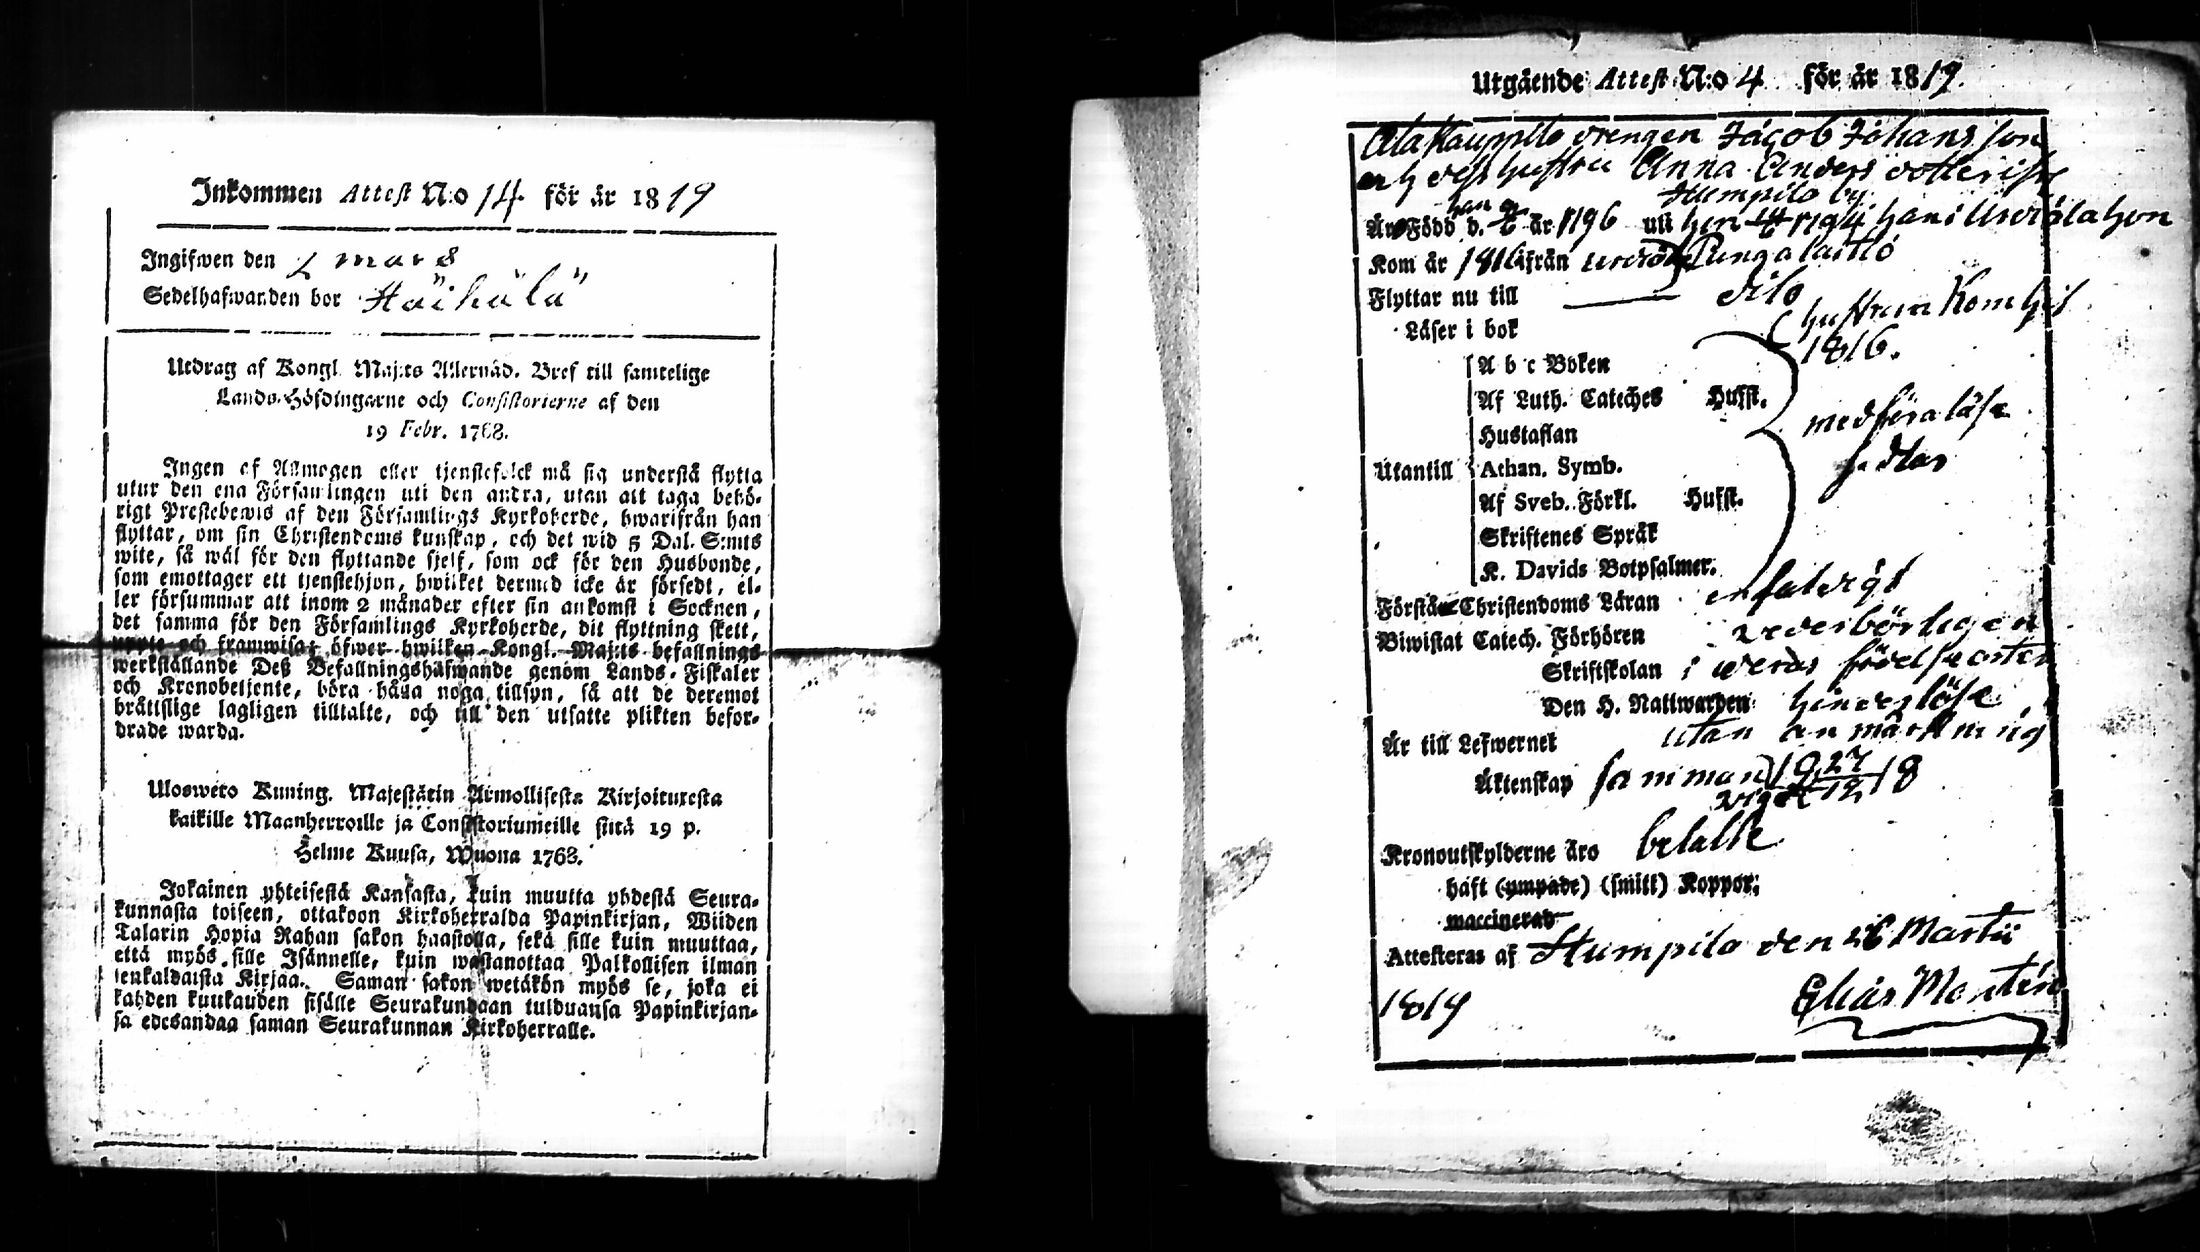 Inkommen Attest N:o 14. för år 1819
Ingifwen den 2 mars
Sedelhafwanden bor Häihälä
Utdrag af Kongl. Maj:ts Allernåd. Bref till samtelige
Lands-Höfdingarne och Consistorierne af den
19 Febr. 1768.
Ingen af Allmogen eller tjenstefolck må sig understå flytta
utur den ena Församlingen uti den andra, utan att taga behö-
rigt Prestebewis af den Församlings Kyrkoherde, hwarifrån han
flyttar, om sin Christendoms kunskap, och det wid 5 Dal. S:mts
wite, så wäl för den flyttande sjelf, som ock för den Husbonde,
som emottager ett tjenstehjon, hwilket dermed icke är försedt, el-
ler försummar att inom 2 månader efter sin ankomst i Socknen,
det samma för den Församlings Kyrkoherde, dit flyttning skett,
uppte och framwisa; öfwer hwilken Kongl. Maj:ts befallnings
werkställande Deß Befallningshafwande genom Lands-Fiskaler
och Kronobetjente, böra hålla noga tillsyn, så att de deremot
bråttslige lagligen tilltalte, och till den utsatte plikten befor-
drade warda.
Ulosweto Kuning. Majestätin Armollisesta Kirjoituxesta
kaikille Maanherroille ja Consistoriumeille siitä 19 p.
Helme Kuusa, Wuona 1768.
Jokainen yhteisestä Kansasta, kuin muutta yhdestä Seura-
kunnasta toiseen, ottakoon Kirkoherralda Papinkirjan, Wiiden
Talarin Hopia Rahan sakon haastolla, sekä sille kuin muuttaa,
että myös sille Isännelle, kuin wastanottaa Palkollisen ilman
senkaldaista Kirjaa. Saman sakon wetäkön myös se, joka ei
kahden kuukauden sisälle Seurakundaan tulduansa Papinkirjan-
sa edesandaa saman Seurakunnan Kirkoherralle.
Utgående Attest N:o 4 för år 1819.
Ala Kauppila drengen Jacob Johansson
och dess hustru Anna Anders dotter
Humpila by
Äro Född d. år 1796 uti hon 1794 han i Urdiala hon
Kom år 1816 ifrån Urdiala Pungalaitio
Flyttar nu till dito
Läser i bok hustrun Kom hit
1816.
A b c Boken
Af Luth. Cateches Husst.
Hustaflan
Utantill Athan. Symb.
Af Sveb. Förkl. Husst.
Skriftenes Språk
K. Davids Botpsalmer.
medföra läse
sedlar
Förstå Christendoms Läran enfaldigt
Biwistat Catech. Förhören wederbörligen
Skriftskolan i deras födelseorter
Den H. Nattwarden hinderlöse
Är till Lefwernet utan anmärkning
Äktenskap samman
wigde 27/12 18
Kronoutskylderne äro betalte
haft (ympade) (smitt) Koppor;
waccinerad
Attesteras af Humpila den 26 Martii
1819 Elias Montén